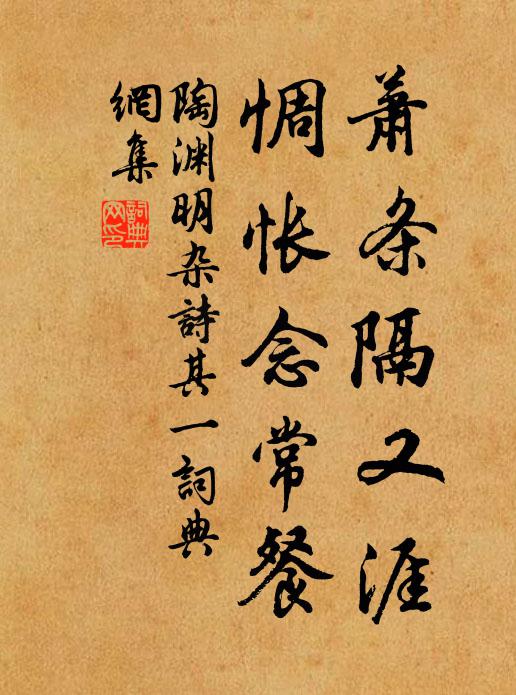 萧条隔又涯
惆怅念常餐
陶渊明杂詩其一詞典
網集
詞典
网印